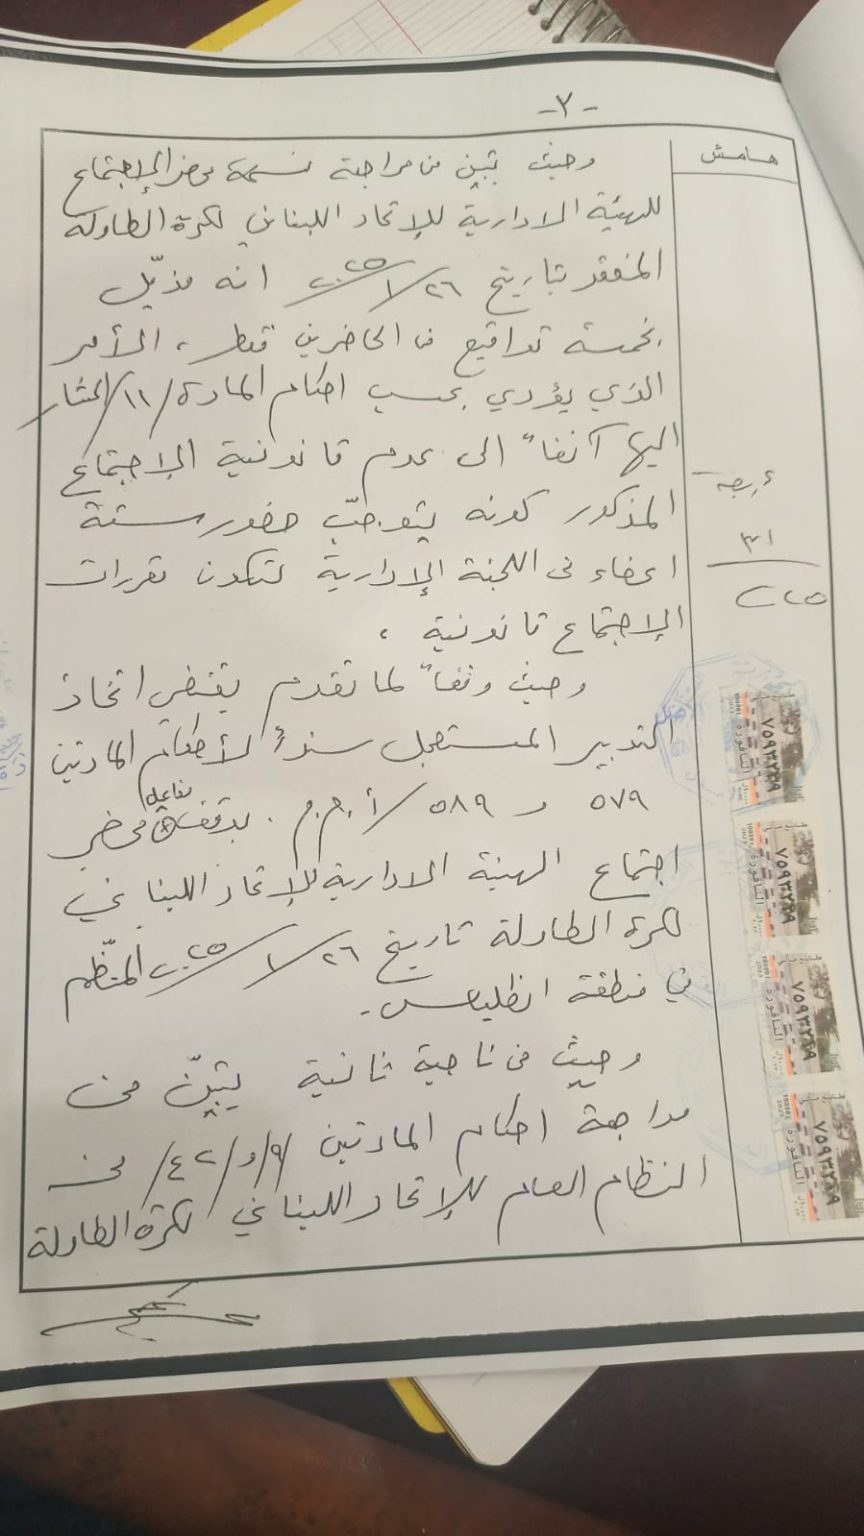 -٢-
هامش
وحيث تبين من مراجعة نسخة محضر الإجتماع
للهيئة الادارية للإتحاد اللبناني لكرة الطاولة
المنعقد بتاريخ ٢٦/١/٢٠٢٥ انه مذيّل
بخمسة تواقيع من الحاضرين فقط، الأمر
الذي يؤدي بحسب احكام المادة /١١/ المشار
اليها آنفاً الى عدم قانونية الإجتماع
المذكور كونه يتوجّب حضور ستة
اعضاء من اللجنة الإدارية لتكون مقررات
الإجتماع قانونية،
وحيث وفقاً لما تقدم يقتضي اتخاذ
التدبير المستعجل سنداً لأحكام المادتين
٥٧٩ و ٥٨٩/أ.م.م. بوقف مفاعيل محضر
اجتماع الهيئة الادارية للإتحاد اللبناني
لكرة الطاولة تاريخ ٢٦/١/٢٠٢٥ المنظّم
في منطقة انطلياس.
وحيث من ناحية ثانية يتبيّن من
مراجعة احكام المادتين /٩/ و /٤٢/ من
النظام العام للإتحاد اللبناني لكرة الطاولة
٧٥٩٣٢٢٨